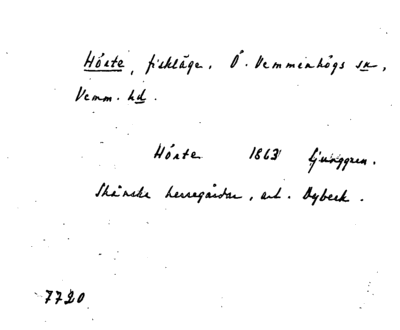 Hörte, fiskläge. Ö. Vemmenhögs sn,
Vemm. hd.
Hörte 1863 Ljunggren.
Skånska herregårdar, art. Dybeck.
7720